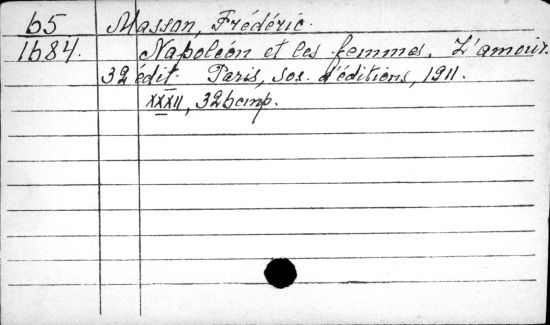 65 Masson, Frédéric.
1684. Napoléon et les femmes. L'amour.
32 édit. Paris, soc. d'éditions, 1911.
XXXII, 326 стр.